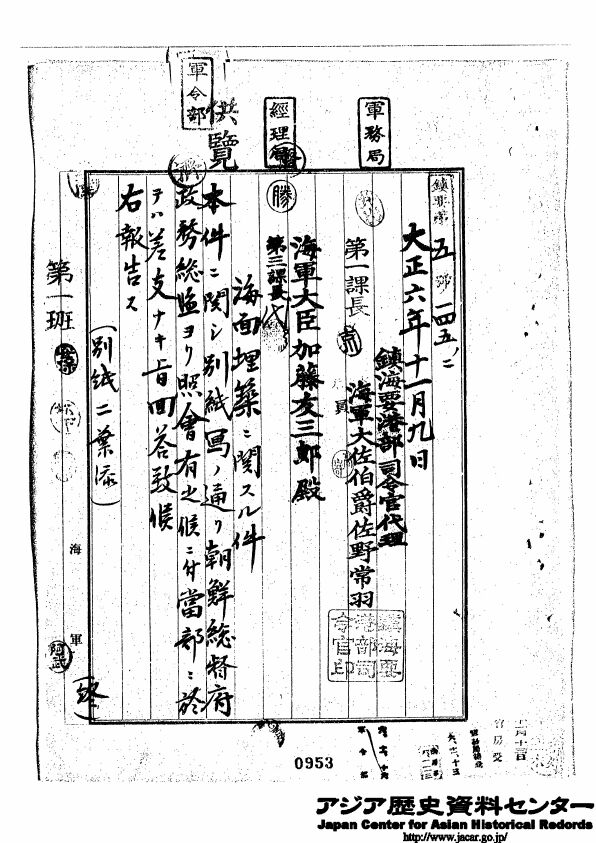 軍務局
經理局
軍令部
供覽
鎮要第五號ノ四五ノ二
大正六年十一月九日
鎮海要港部司令官代理
海軍大佐伯爵佐野常羽
鎮海要港部司令官印
第一課長
海軍大臣加藤友三郎殿
勝
第三課長 代
海面埋築ニ関スル件
本件ニ関シ別紙寫ノ通リ朝鮮総督府
政務総監ヨリ照會有之候ニ付當部ニ於
テハ差支ナキ旨回答致候
右報告ス
(別紙二葉添)
(終)
第一班
海軍
阿武
0953
アジア歴史資料センター
Japan Center for Asian Historical Records
http://www.jacar.go.jp/